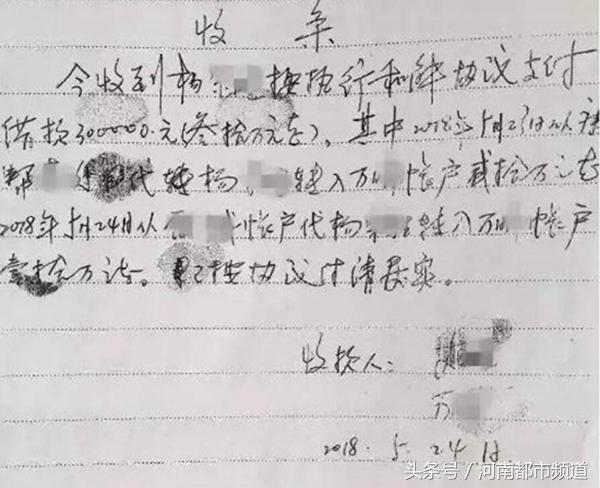 收 条
今收到杨 按执行和解协议支付
借款300000.元(叁拾万元正)。其中2018年5月23日从
帮 代 转杨 转入万 帐户贰拾万元正
2018年5月24日从 帐户代杨 转入万 帐户
壹拾万元正。已按协议付清属实。
收款人:
万
2018.5.24日
头条号/河南都市频道